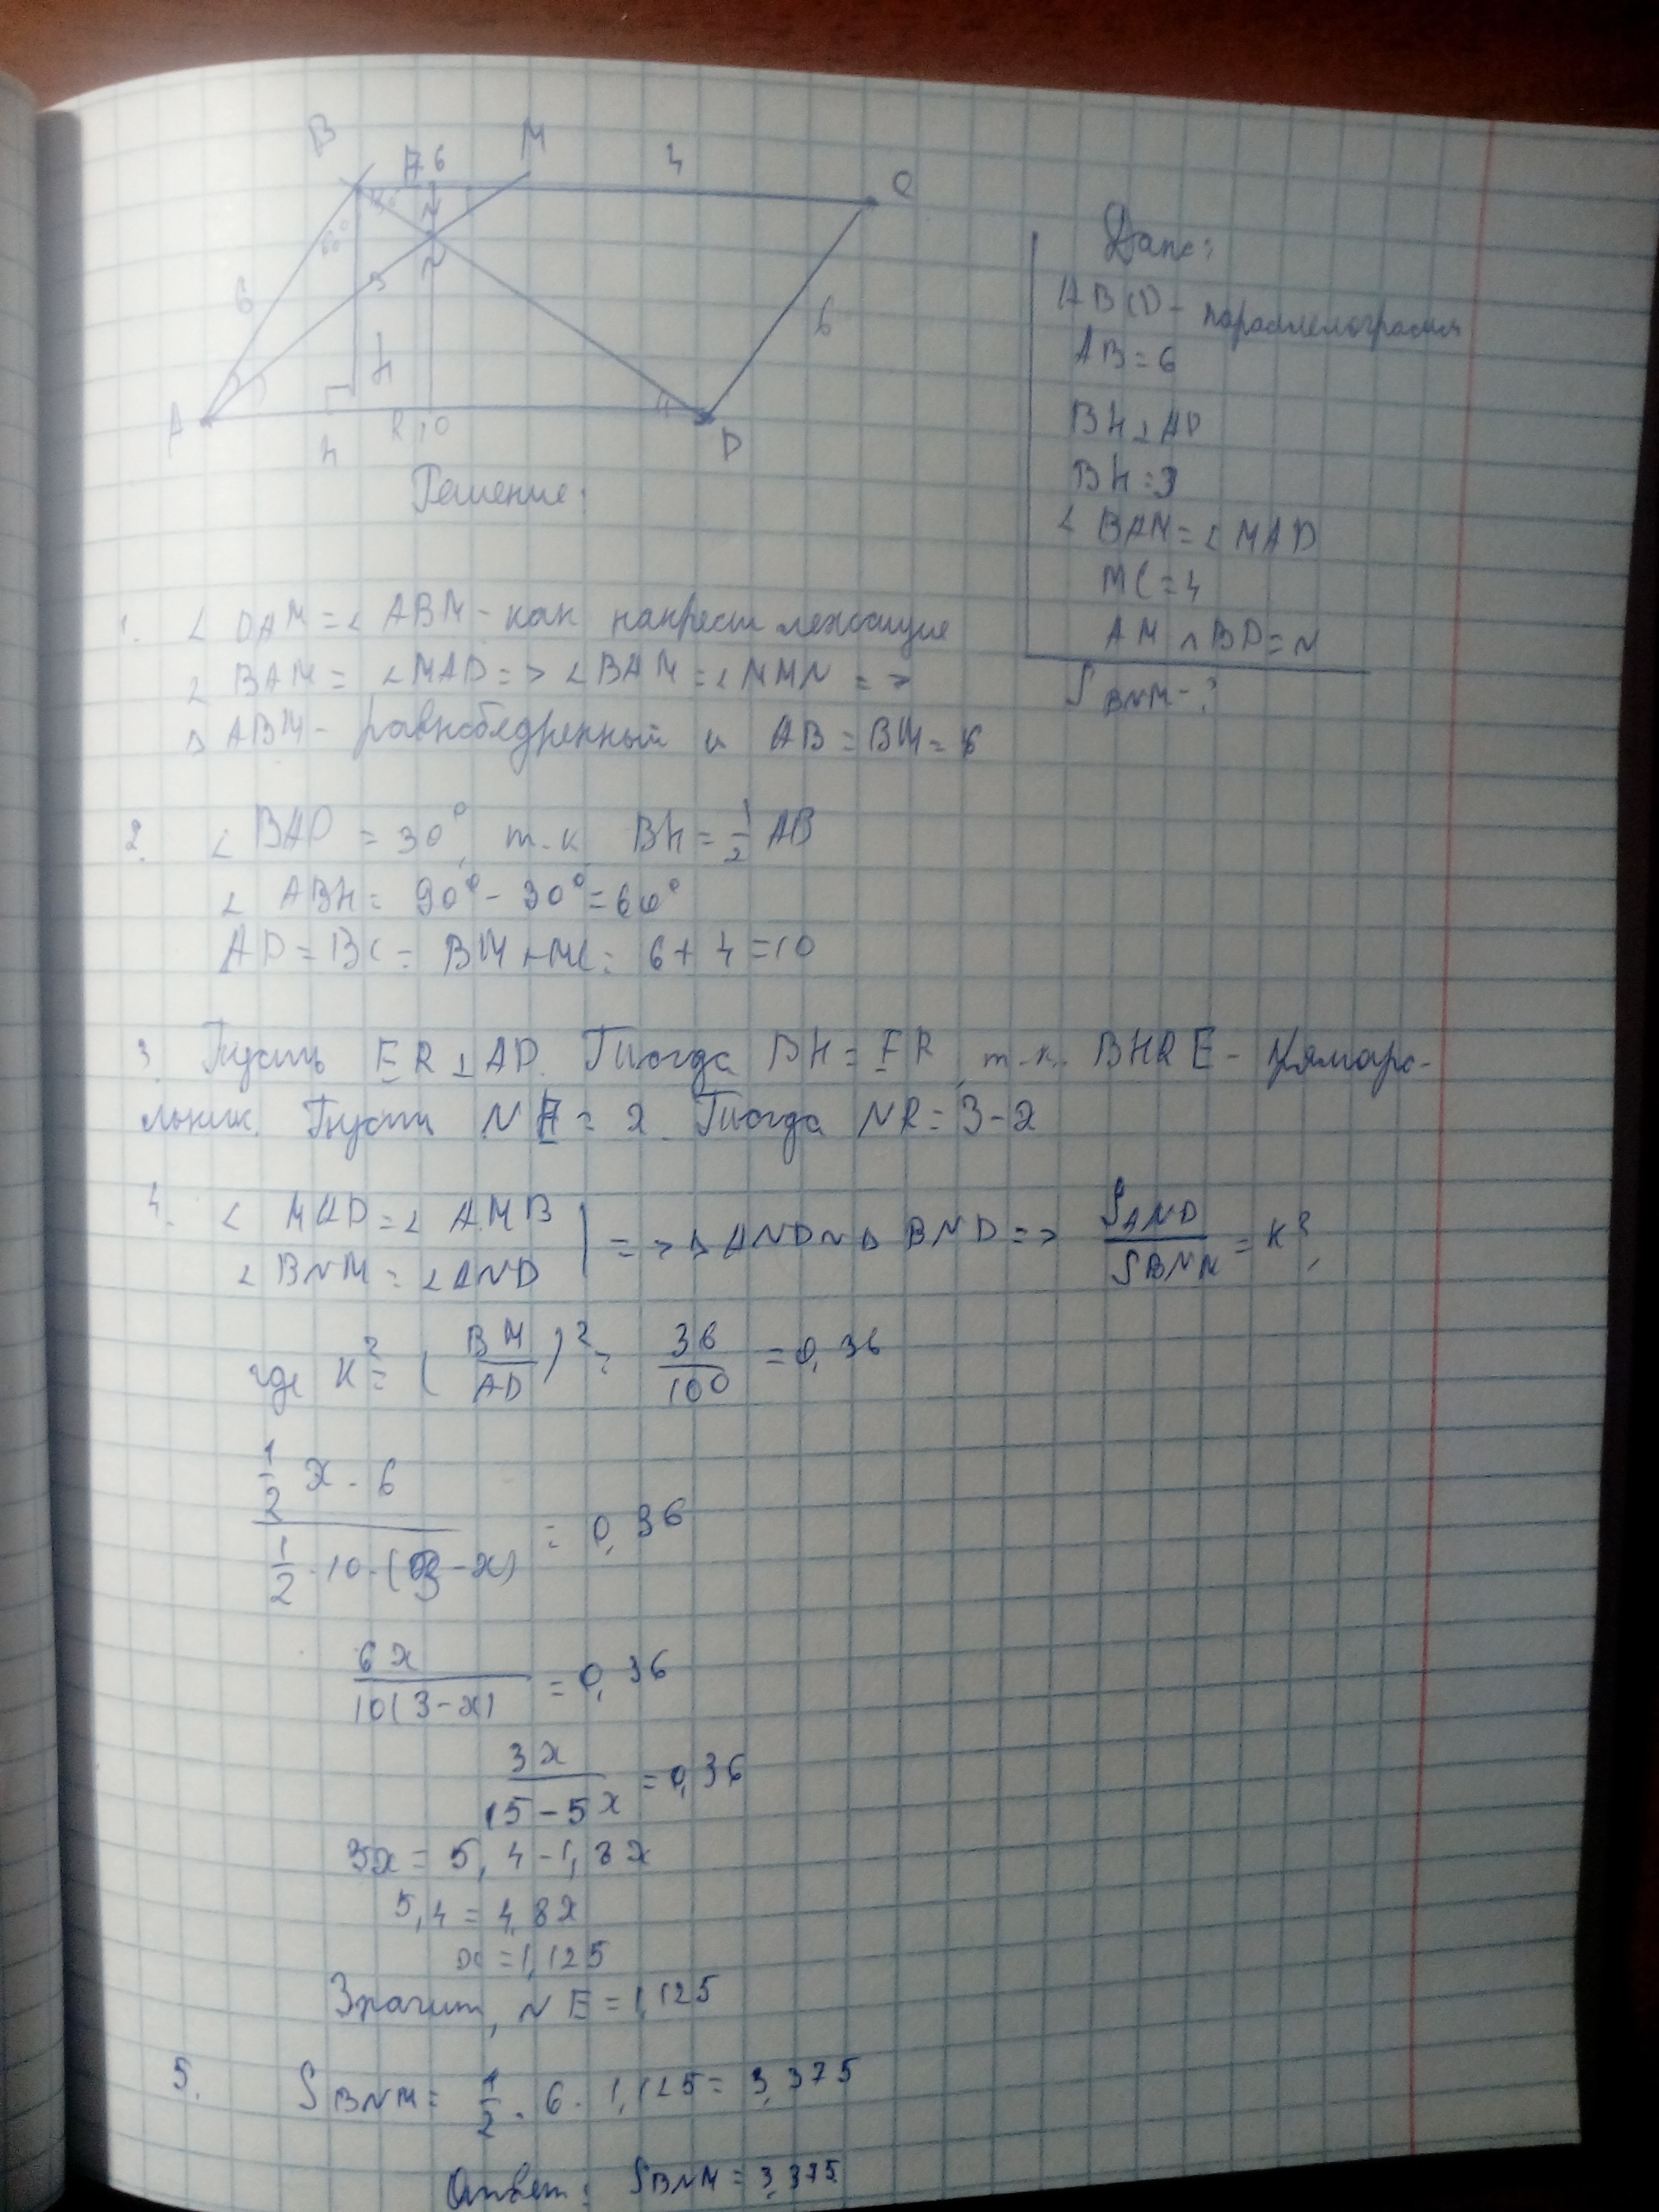 B E 6 M 4 C
30°
60° N
6 3 6
H
A H R 10 D
Дано:
ABCD - параллелограмм
AB = 6
BH ⊥ AD
BH = 3
∠ BAM = ∠ MAD
MC = 4
AM ∩ BD = N
S BNM - ?
Решение:
1. ∠ DAM = ∠ ABM - как накрест лежащие
∠ BAM = ∠ MAD => ∠ BAM = ∠ =>
Δ ABM - равнобедренный и AB = BM = 6
2. ∠ BAD = 30°, т.к. BH = 1/2 AB
∠ ABH = 90° - 30° = 60°
AD = BC = BM + MC = 6 + 4 = 10
3. Пусть ER ⊥ AD. Тогда BH = ER, т.к. BHRE - прямоуго-
льник. Пусть NE = x. Тогда NR = 3 - x
4. ∠ MAD = ∠ AMB
∠ BNM = ∠ AND | => Δ AND ~ Δ BND => S AND / S BNM = K²,
где K² = (BM/AD)² = 36/100 = 0,36
(1/2 x · 6) / (1/2 · 10 · (3 - x)) = 0,36
6x / 10(3 - x) = 0,36
3x / (15 - 5x) = 0,36
3x = 5,4 - 1,8x
5,4 = 4,8x
x = 1,125
Значит, NE = 1,125
5. S BNM = 1/2 · 6 · 1,125 = 3,375
Ответ: S BNM = 3,375